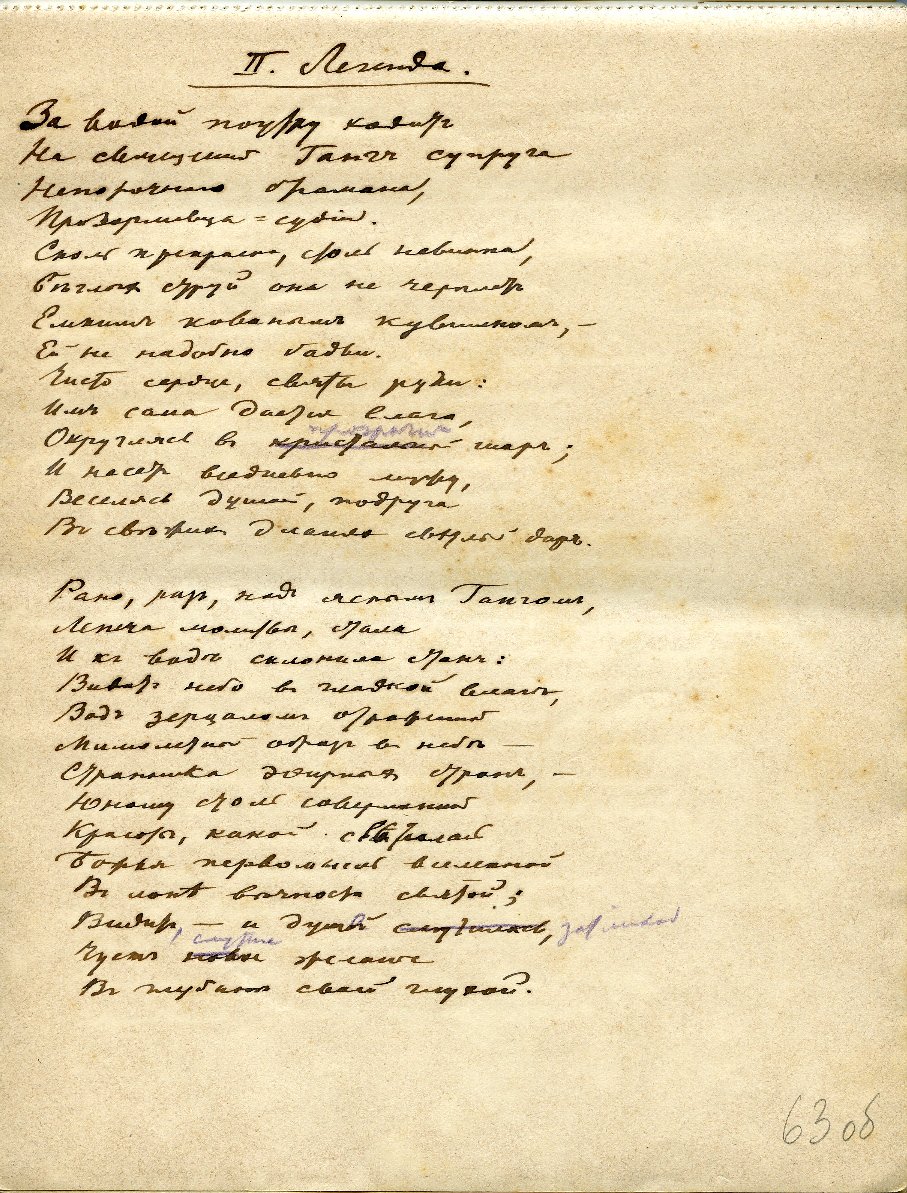 II. Легенда.
За водой поутру ходитъ
На священный Гангъ супруга
Непорочнаго брамана,
Прозорливца-судіи.
Столь прекрасна, столь невинна,
Бѣглыхъ струй она не черплетъ
Емкимъ кованымъ кувшиномъ, –
Ей не надобно бадьи.
Чисто сердце, святы руки:
Имъ сама дается влага,
прозрачный
Округлясь въ кристальный шаръ;
И несетъ вседневно мужу,
Веселясь душой, подруга
Въ свѣжихъ дланяхъ свѣтлый даръ.
Рано, разъ, надъ яснымъ Гангомъ,
Лепеча молитвы, стала
И къ водѣ склонила станъ:
Видитъ небо въ гладкой влагѣ,
Водъ зерцаломъ отраженный
Мимолетный образъ въ небѣ —
Странника эѳирныхъ странъ, –
Юноши столь совершенной
Красоты, какой свѣтлала
Божья первомысль вселенной
Въ лонѣ вѣчности святой;
Видитъ, – и душой смутилась,
смутно
Чуетъ новое желанье
Въ глубинѣ своей глухой.
63 об